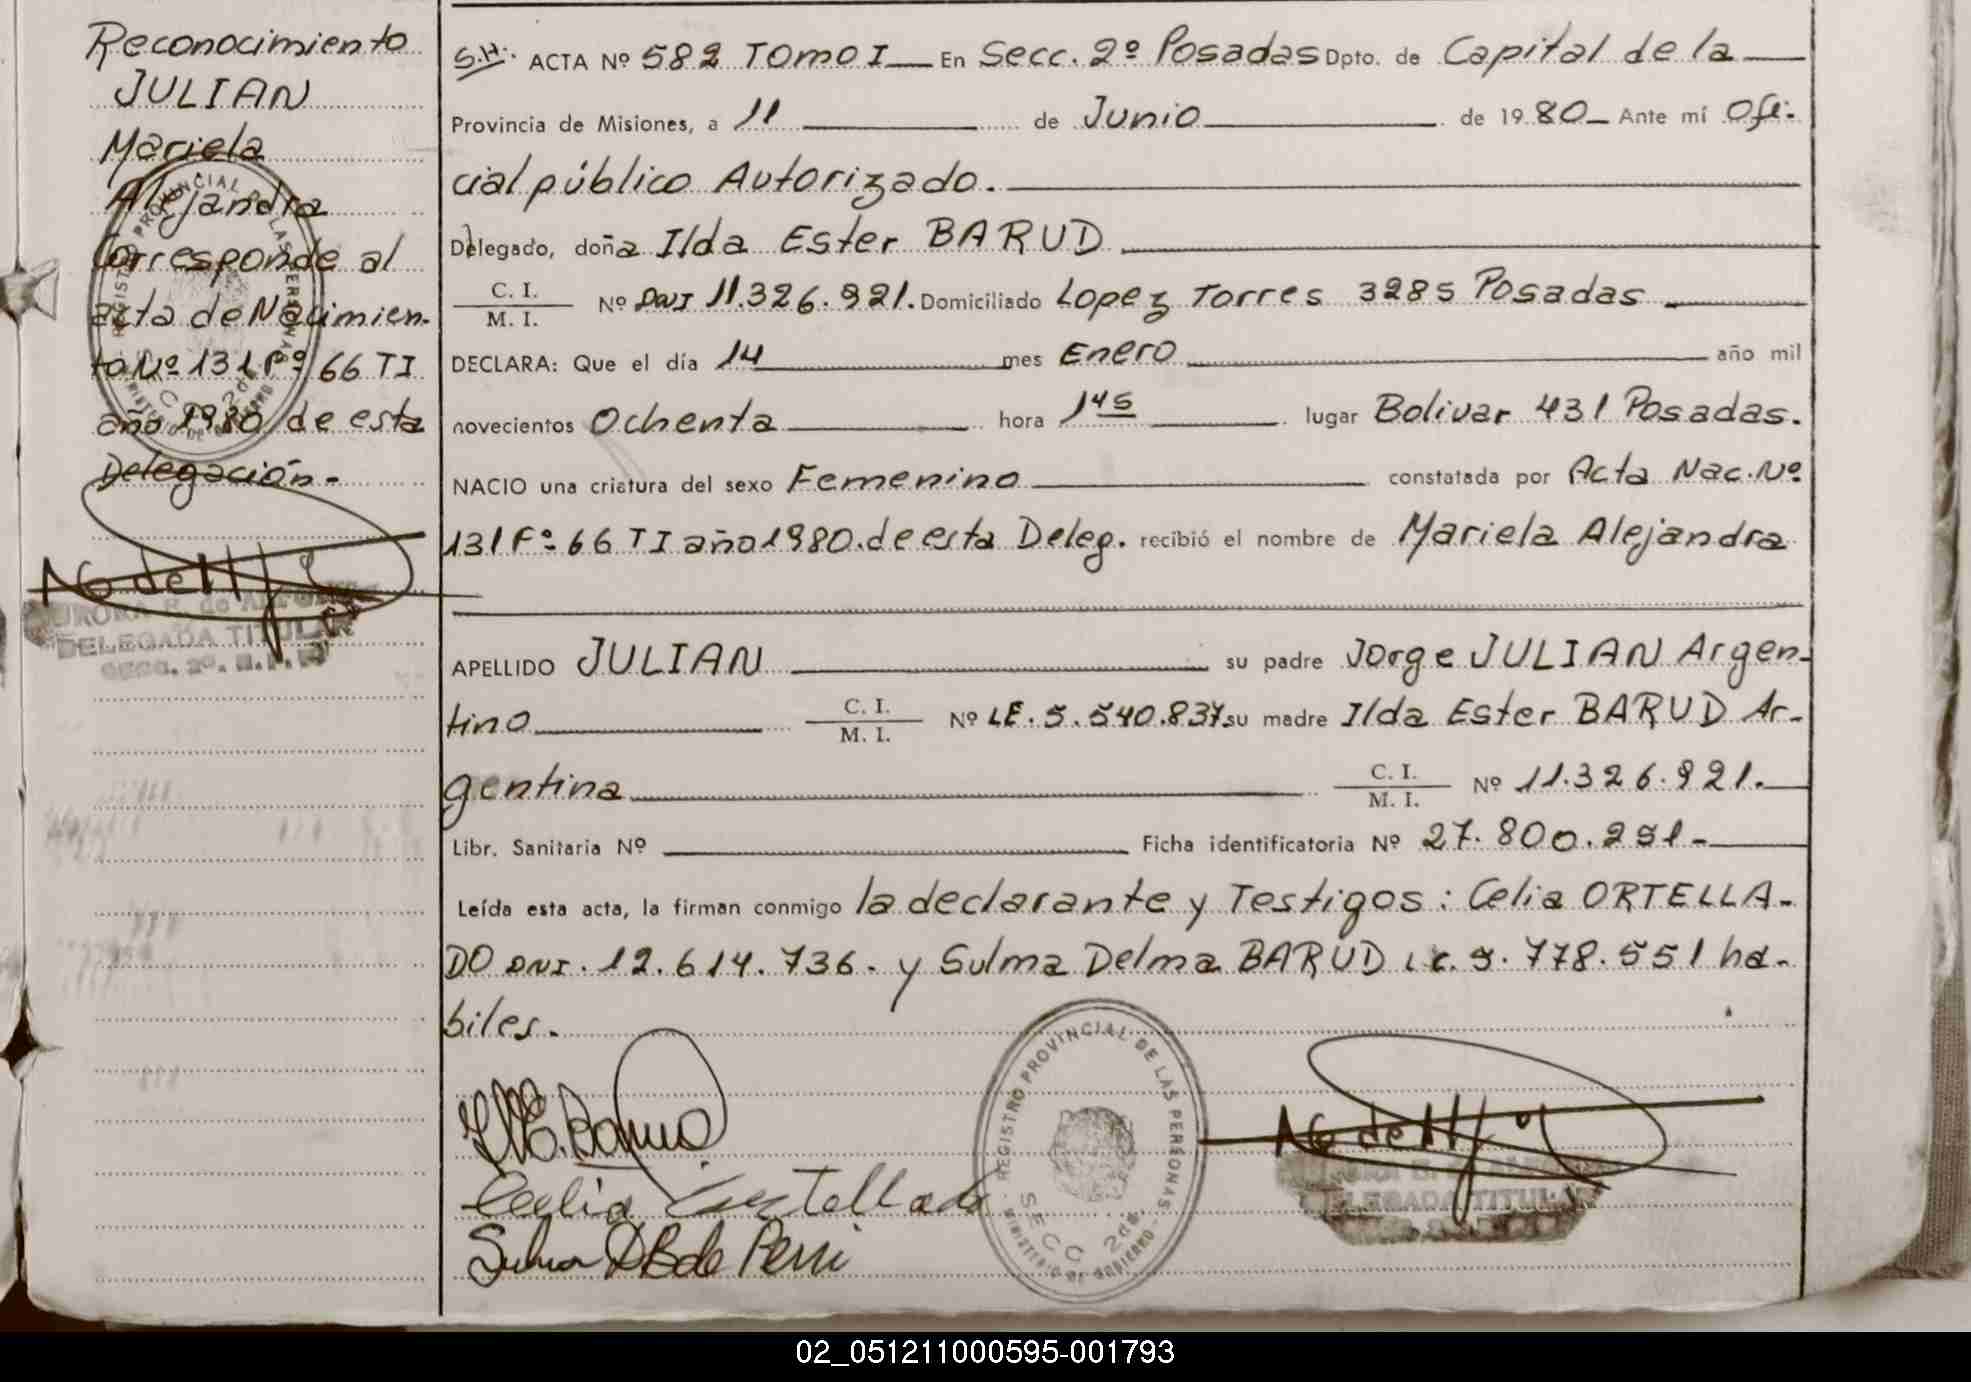 Reconocimiento
JULIAN
Mariela
Alejandra
Corresponde al
acta de Nacimien-
to Nº 131 Fº 66 TI
año 1980 de esta
Delegación.-
DELEGADA TITULAR
SECC. 2º. R.P.P.
S.H. ACTA Nº 582 TOMO I En Secc. 2º Posadas Dpto. de Capital de la
Provincia de Misiones, a 11 de Junio de 1980 Ante mí Ofi-
cial público Autorizado.
Delegado, doña Ilda Ester BARUD
C. I.
M. I. Nº DNI 11.326.921. Domiciliado Lopez Torres 3285 Posadas
DECLARA: Que el día 14 mes Enero año mil
novecientos Ochenta hora 1 45 lugar Bolivar 431 Posadas.
NACIO una criatura del sexo Femenino constatada por Acta Nac. Nº
131 Fº 66 TI año 1980. de esta Deleg. recibió el nombre de Mariela Alejandra
APELLIDO JULIAN su padre Jorge JULIAN Argen-
tino C. I.
M. I. Nº LE. 5.540.837 su madre Ilda Ester BARUD Ar-
gentina C. I.
M. I. Nº 11.326.921.
Libr. Sanitaria Nº Ficha identificatoria Nº 27.800.291-
Leída esta acta, la firman conmigo la declarante y Testigos: Celia ORTELLA-
DO DNI. 12.614.736. y Sulma Delma BARUD L.C. 9.778.551 ha-
biles.
REGISTRO PROVINCIAL DE LAS PERSONAS
SECC 2da.
MINISTERIO DE GOBIERNO
DELEGADA TITULAR
02_051211000595-001793